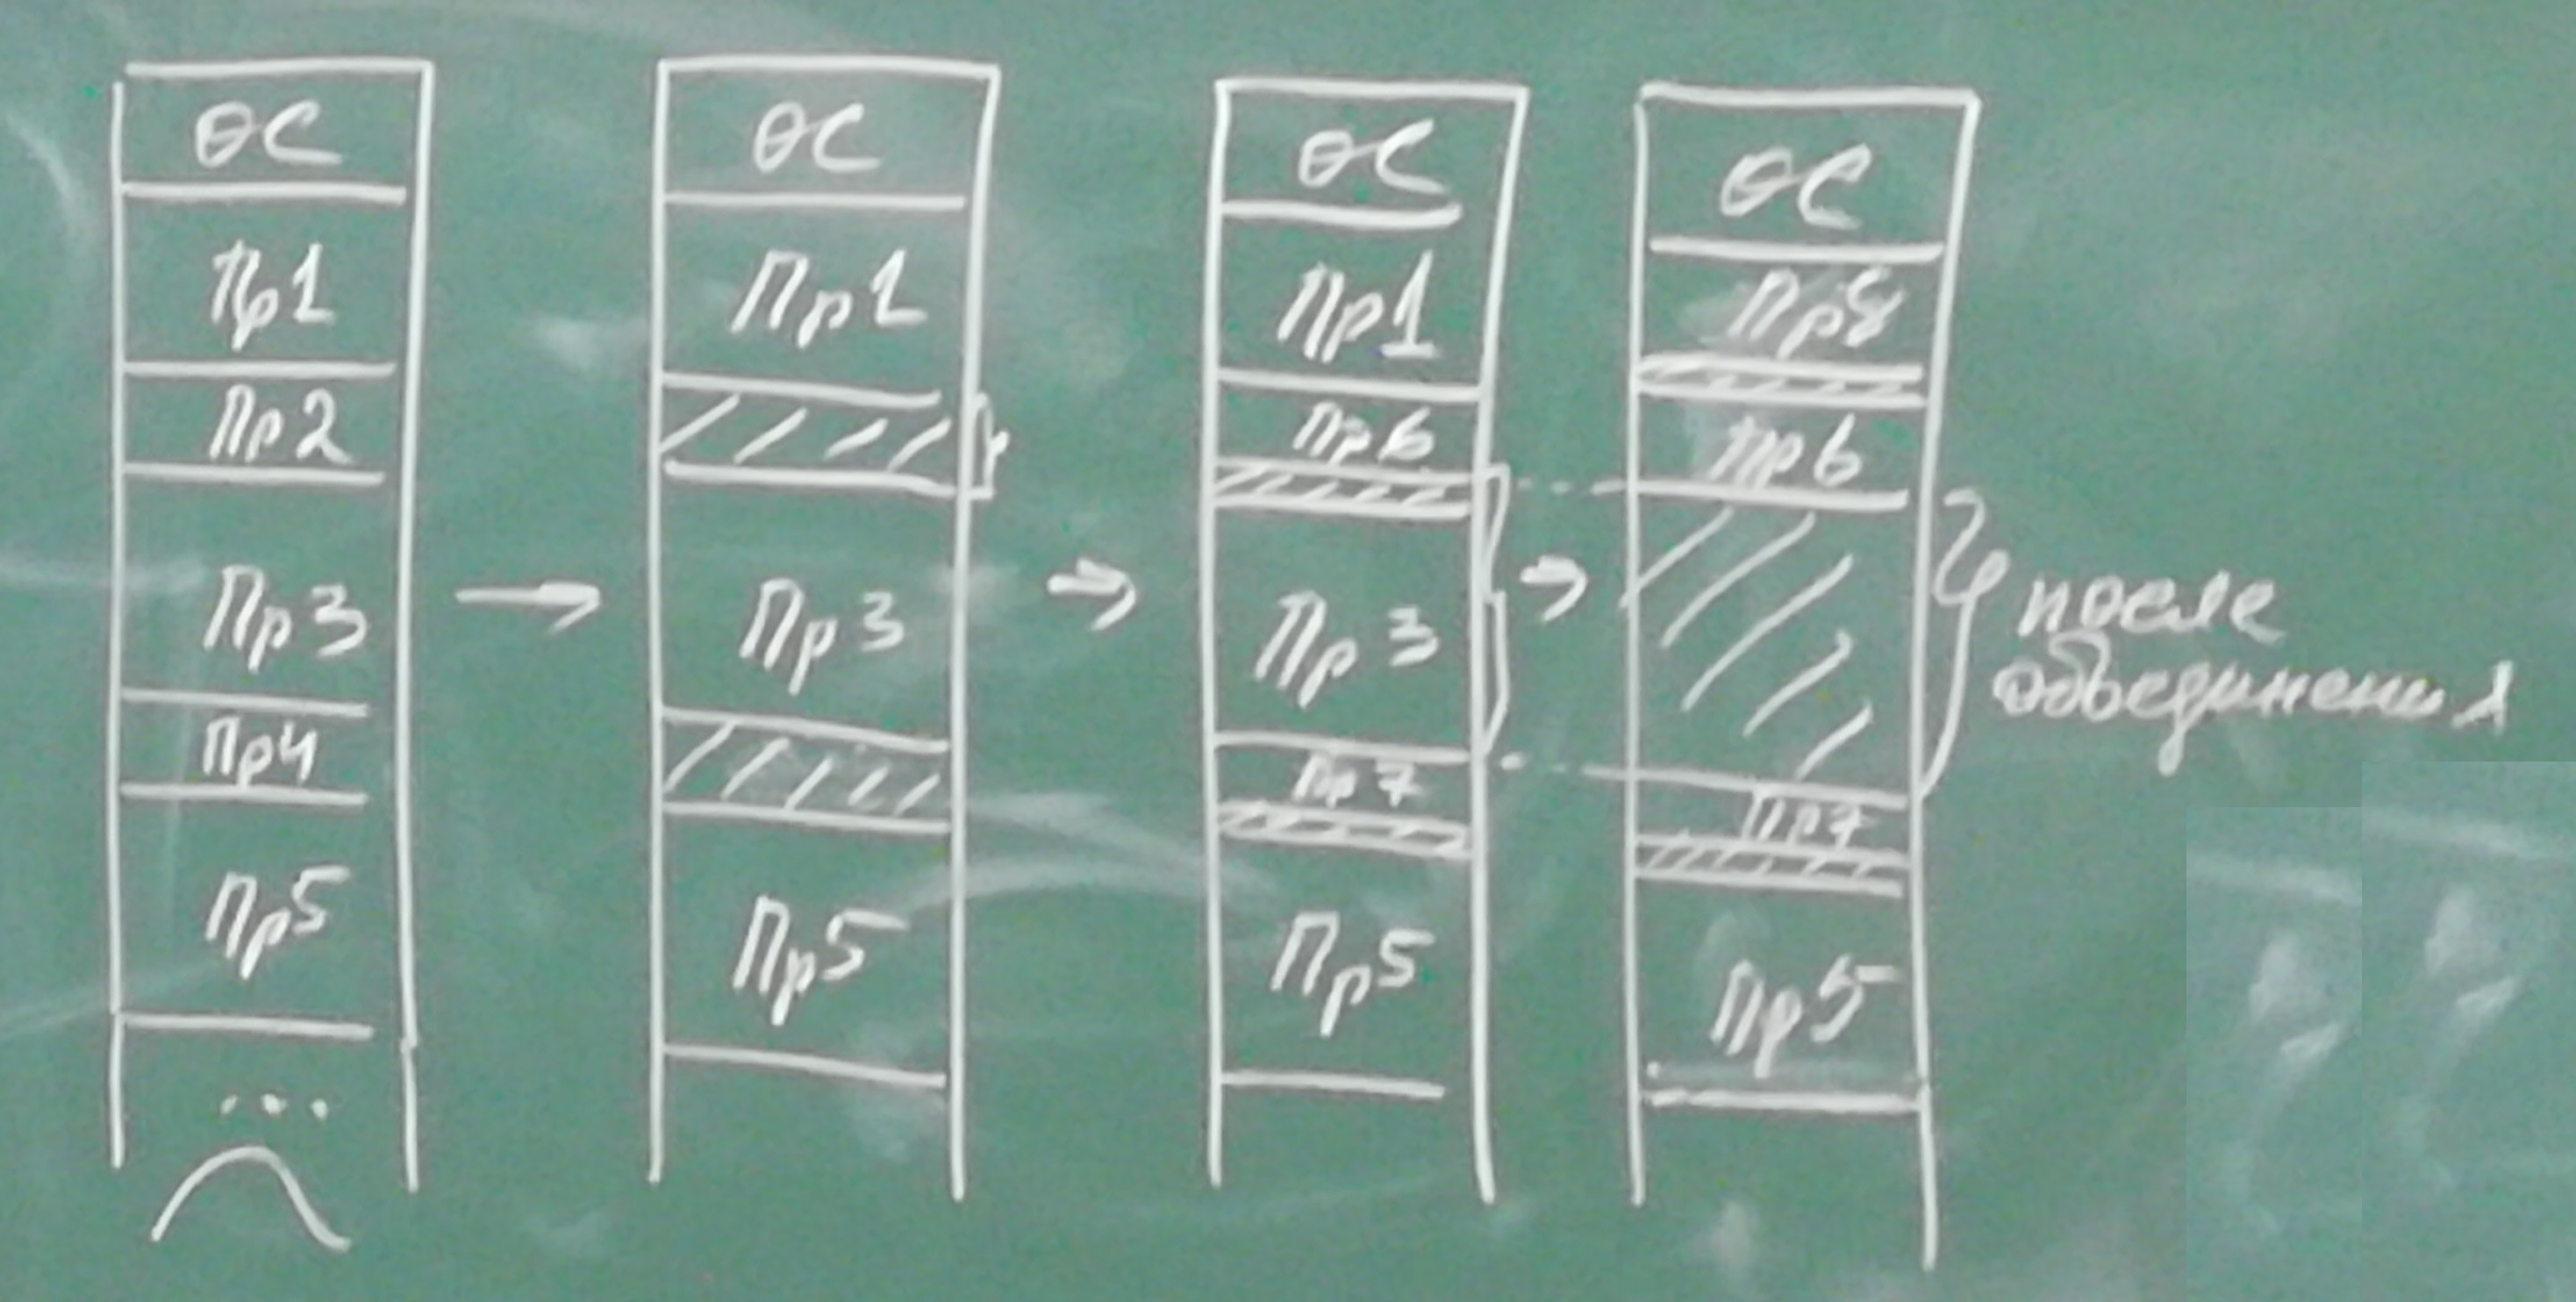 ОС
Пр1
Пр2
Пр3
Пр4
Пр5
...
ОС
Пр1
Пр3
Пр5
ОС
Пр1
Пр6
Пр3
Пр7
Пр5
ОС
Пр8
Пр6
Пр7
Пр5
после
объединения